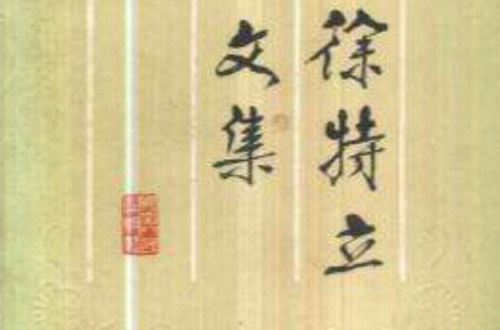 徐特立
文集